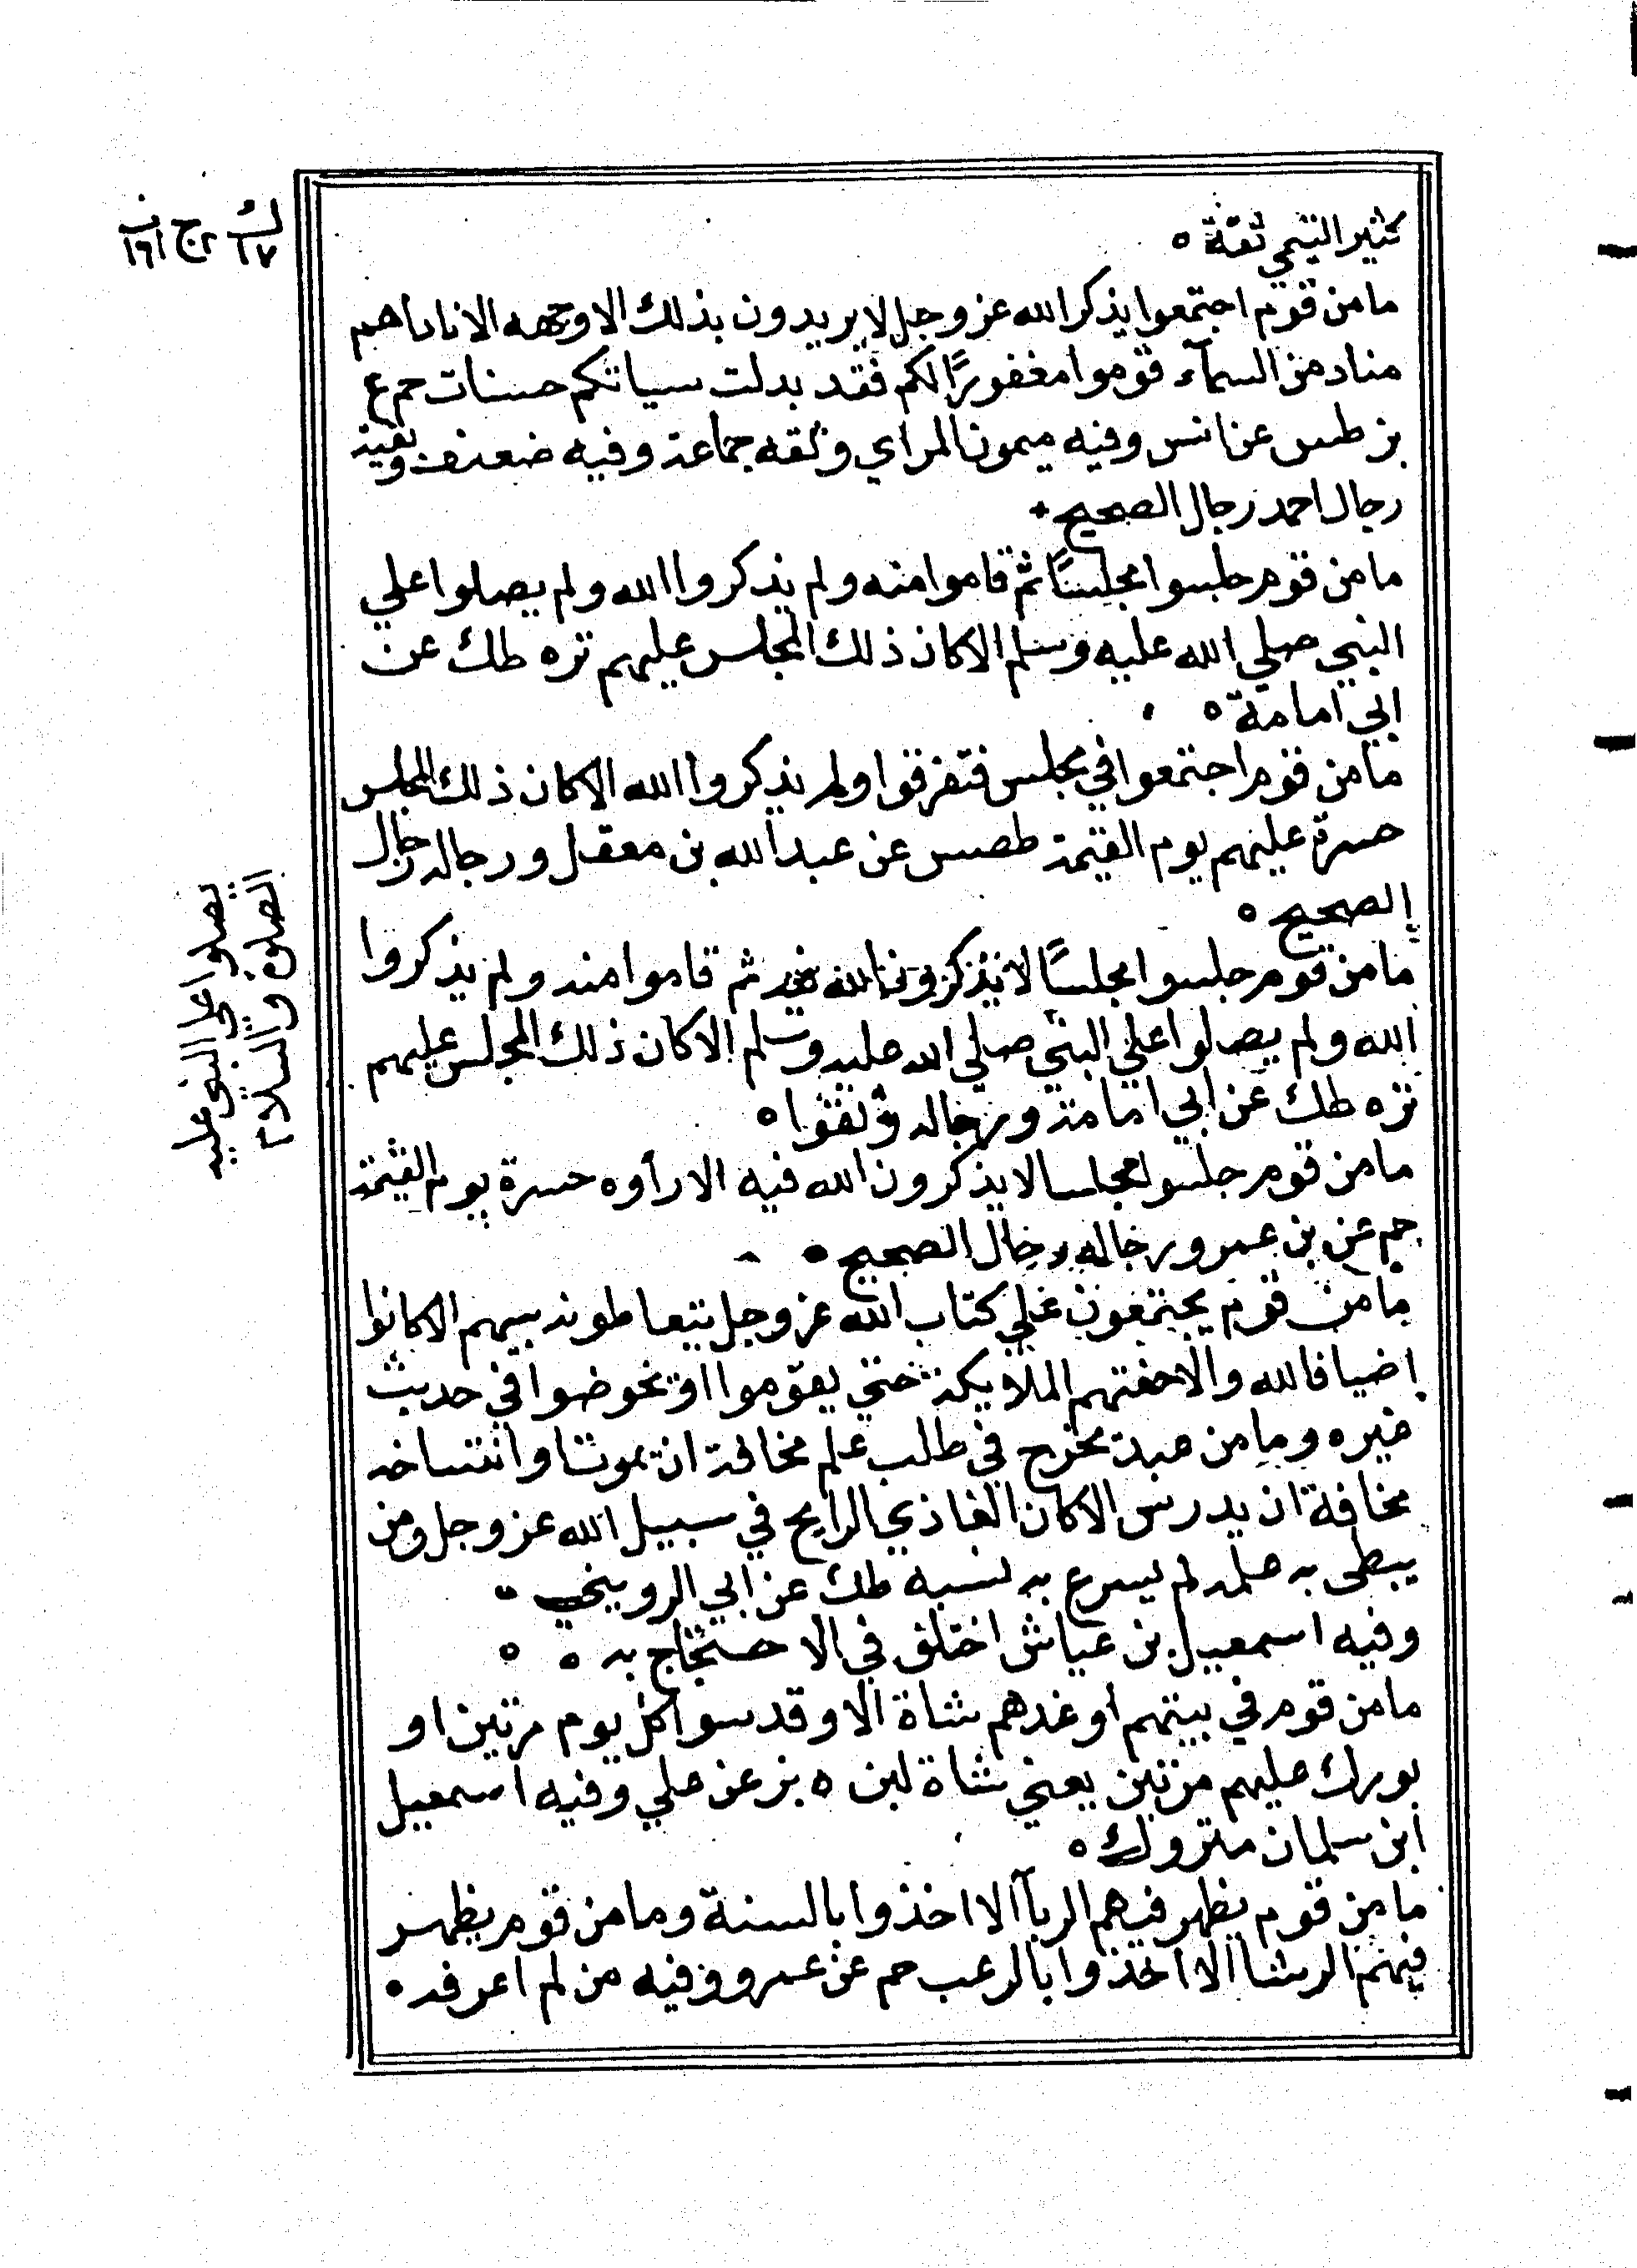 كثير التيمي ثقة ه
ما من قوم اجتمعوا يذكر الله عز وجل لا يريدون بذلك الا وجهه الا ناداهم
مناد من السمآء قوموا مغفورًا لكم فقد بدلت سياتكم حسنات حم ع
بز طس عن انس وفيه ميمون المراي وثقه جماعة وفيه ضعف وبقية
رجال احمد رجال الصحيح
ما من قوم جلسوا مجلسًا ثم قاموا منه ولم يذكروا الله ولم يصلوا علي
النبي صلي الله عليه وسلم الا كان ذلك المجلس عليهم تره طك عن
ابي امامة ه
ما من قوم اجتمعوا في مجلس فتفرقوا ولم يذكروا الله الا كان ذلك المجلس
حسرة عليهم يوم القيمة طصس عن عبد الله بن معقل ورجاله رجال
الصحيح ه
ما من قوم جلسوا مجلسًا لا يذكرون الله فيه ثم قاموا منه ولم يذكروا
الله ولم يصلوا علي النبي صلي الله عليه وسلم الا كان ذلك المجلس عليهم
تره طك عن ابي امامة ورجاله وثقوا ه
ما من قوم جلسوا مجلسا لا يذكرون الله فيه الا راوه حسرة يوم القيمة
حم عن بن عمرو رجاله رجال الصحيح ه
ما من قوم يجتمعون علي كتاب الله عز وجل يتعاطونه بينهم الا كانوا
اضيافا لله والا حفتهم الملايكة حتي يقوموا او يخوضوا في حديث
غيره وما من عبد يخرج في طلب علم مخافة ان يموت او انتساخه
مخافة ان يدرس الا كان الغاذي الرايح في سبيل الله عز وجل ومن
يبطى به عمله لم يسرع به نسبه طك عن ابي الرويني
وفيه اسمعيل بن عياش اختلف في الاحتجاج به ه ه
ما من قوم في بيتهم او عندهم شاة الا وقدسوا كل يوم مرتين او
بورك عليهم مرتين يعني شاة لبن ه بز عن علي وفيه اسمعيل
ابن سلمان متروك ه
ما من قوم يظهر فيهم الربآ الا اخذوا بالسنة وما من قوم يظهر
فيهم الرشا الا اخذوا بالرعب حم عن عمرو وفيه من لم اعرفه ه
تصلوا على النبي عليه
الصلوة والسلام